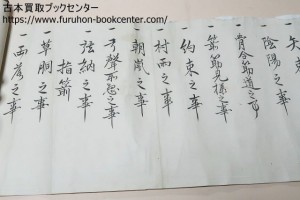 古本買取ブックセンター
https://www.furuhon-bookcenter.com/
矢
陰陽之事
骨合節道之事
箭節見様之事
約束之事
一 村雨之事
一 朝嵐之事
一 弓聲不怱之事
一 弦納之事
指箭
一 草胴之事
一 雨落之事